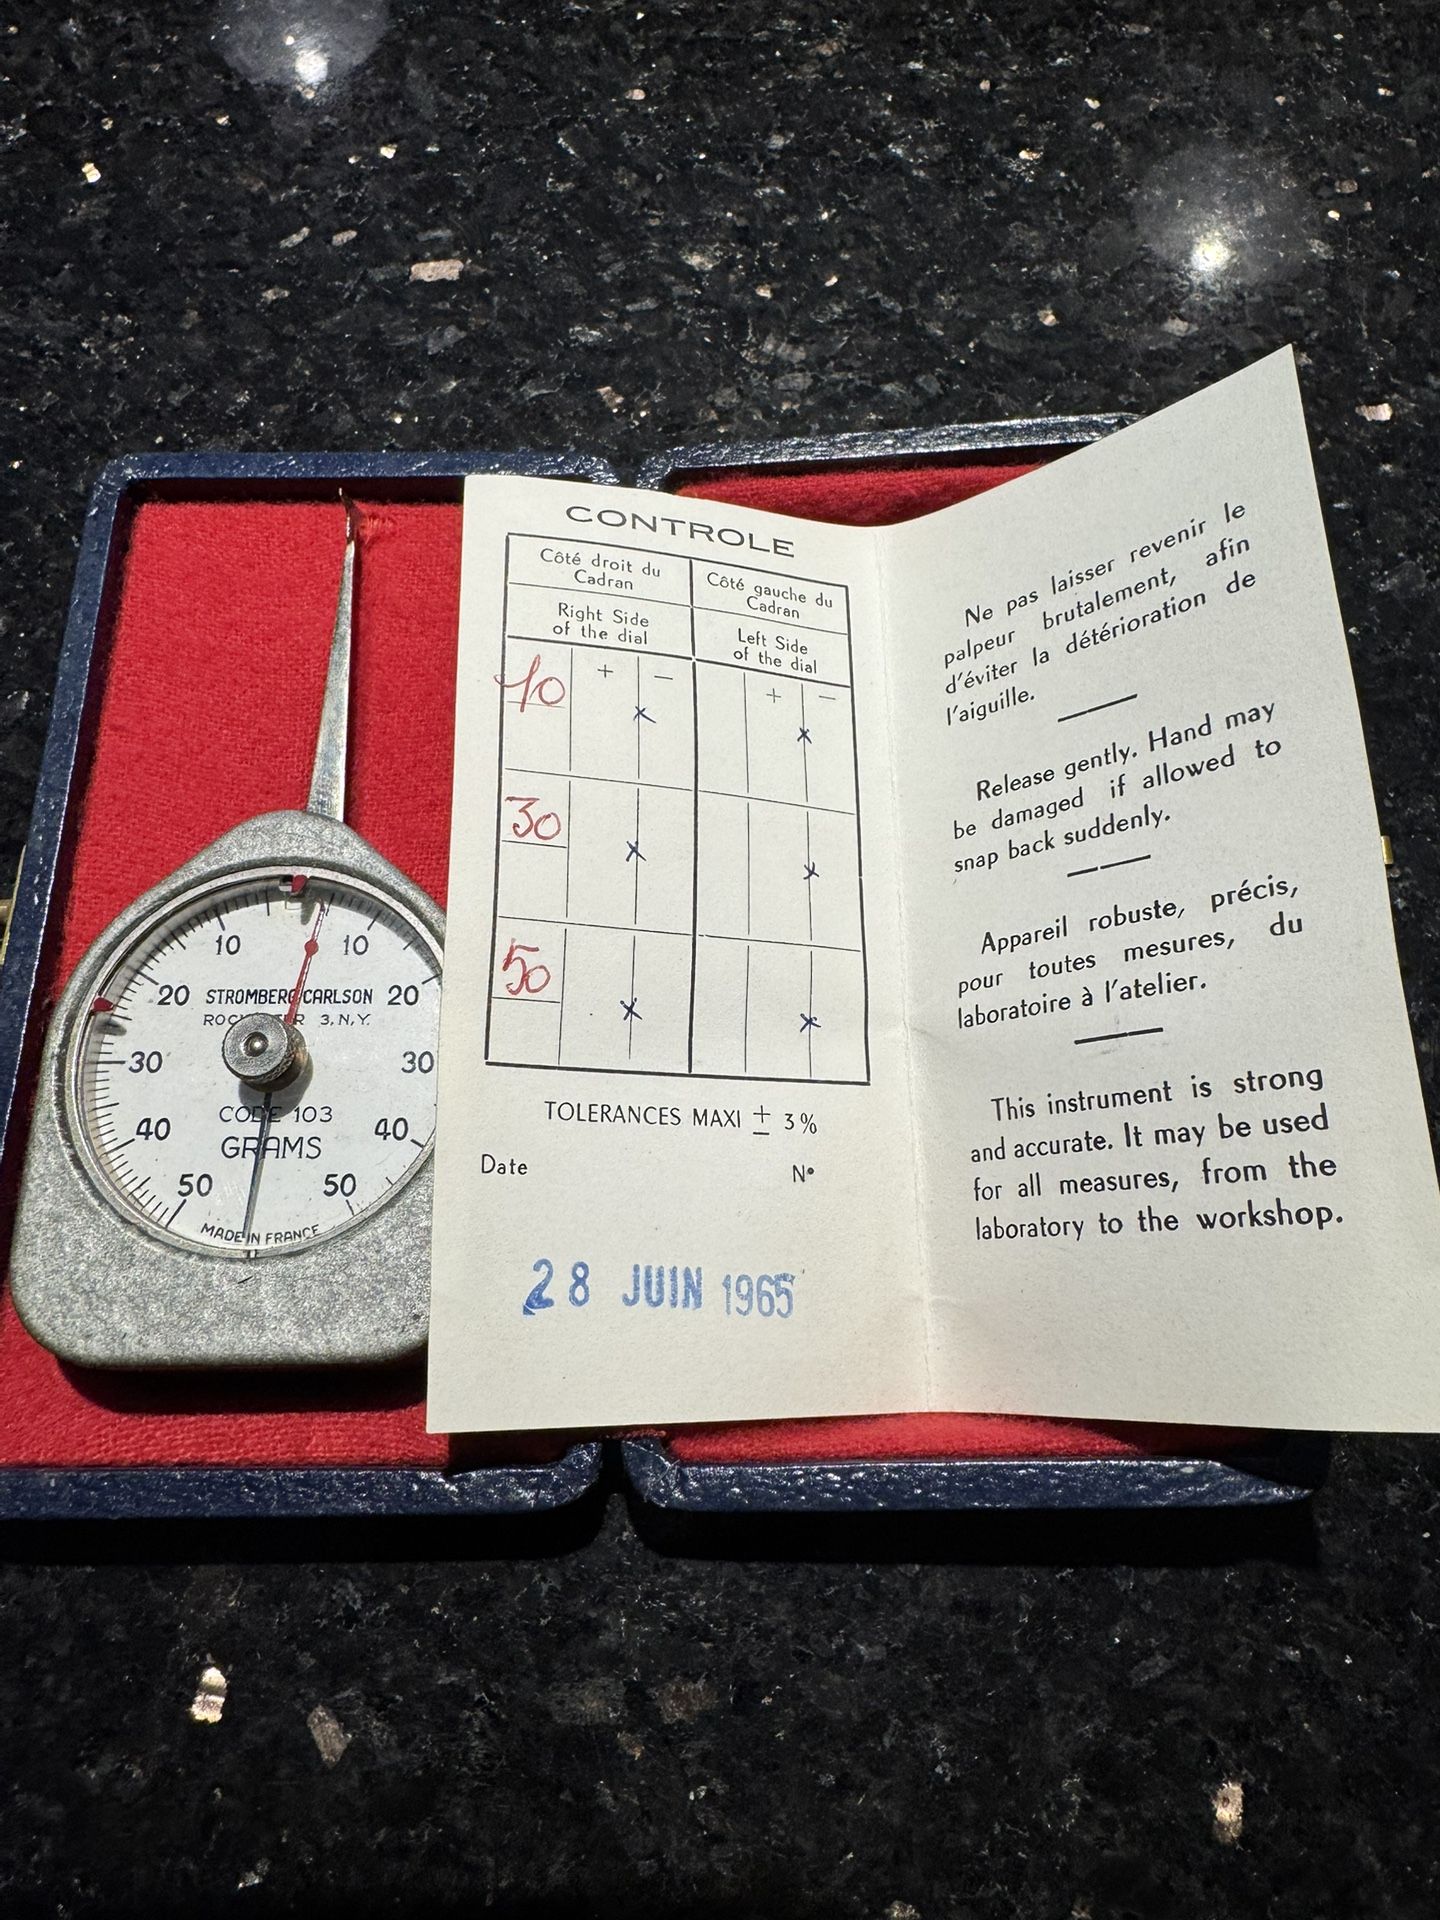 10 10
20 STROMBERG CARLSON 20
3, N.Y.
30 30
CODE 103
40 40
GRAMS
50 50
MADE IN FRANCE
CONTROLE
Côté droit du
Cadran
Côté gauche du
Cadran
Right Side
of the dial
Left Side
of the dial
10 + − + −
x x
30 x x
50 x x
TOLERANCES MAXI ± 3%
Date N°
28 JUIN 1965
Ne pas laisser revenir le
palpeur brutalement, afin
d'éviter la détérioration de
l'aiguille.
Release gently. Hand may
be damaged if allowed to
snap back suddenly.
Appareil robuste, précis,
pour toutes mesures, du
laboratoire à l'atelier.
This instrument is strong
and accurate. It may be used
for all measures, from the
laboratory to the workshop.